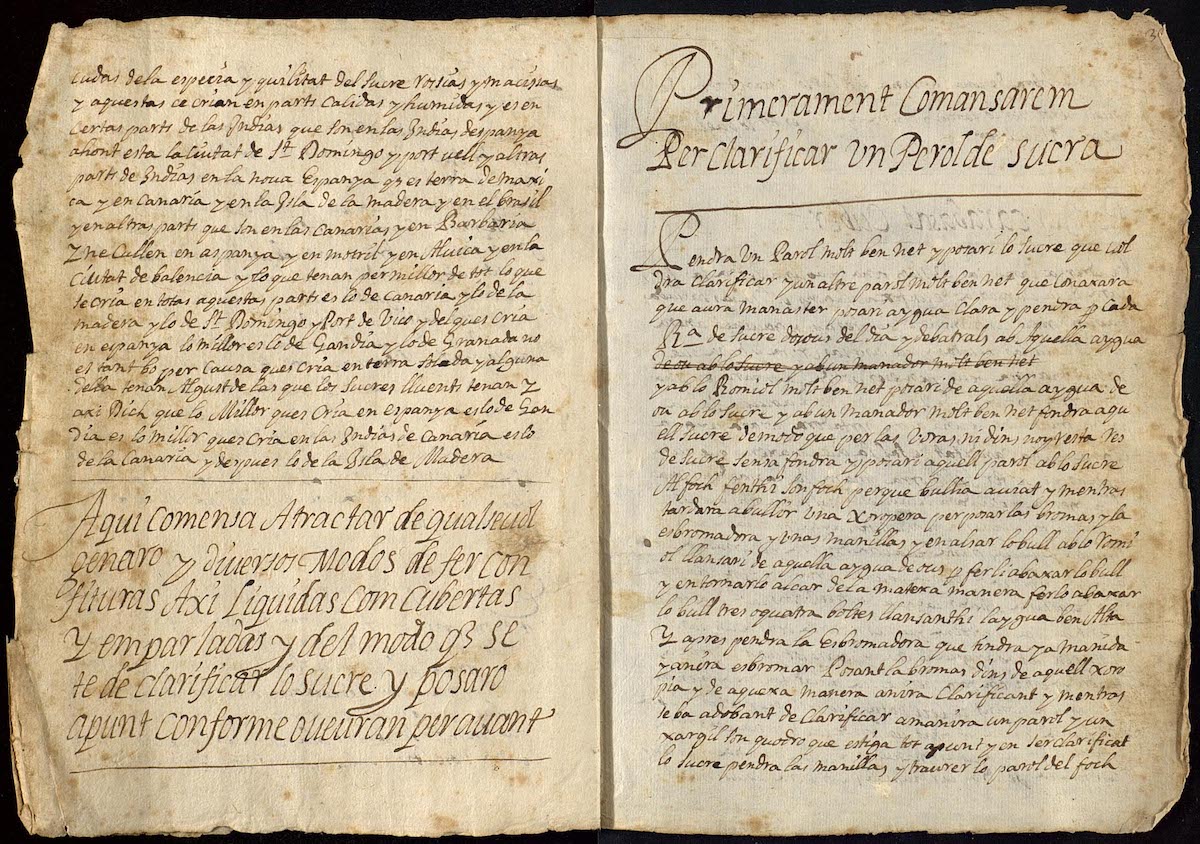 tudas dela especia y quilitat del sucre rosias y macissas
y aquestas ce crian en parts Calidas y humidas y es en
Certas parts de las Indias que son en las Indias despanya
ahont esta la Ciutat de St. Domingo y port vell y altras
parts de Indias en la nova Espanya qes terra de maxi
ca y en Canaria y en la Isla de la madera y en el brasil
y en altras parts que son en las Canarias y en Barbaria
Y ne Cullen en aspanya y en motril y en Aluica y en la
Ciutat de balencia y lo que tenan per millor de tot lo que
se cria en totas aquestas parts es lo de Canaria y lo de la
madera y lo de St. Domingo y Port de Vico y del ques Cria
en espanya lo millor es lo de Gandia y lo de Granada no
es tant bo per Causa ques Cria en terra salada y alguna
delta tenan Algust de las que los Sucres lluents tenan Y
axi Dich que lo Millor ques Cria en espanya es lo de Gan
Dia es lo millor ques Cria en las Indias de Canaria es lo
de la Canaria y despues lo de la Isla de Madera
Aqui Comensa Atractar de qualsevol
genaro y diversos Modos de fer Con
fituras Axi Liquidas Com Cubertas
Y emparladas y del modo qs se
te de clarificar lo sucre y posaro
apunt Conforme oveuran per avant
30
Primerament Comansarem
Per Clarificar vn Perol de sucra
Pendra Vn Parol molt ben net y posari lo sucre que vol
dra Clarificar y un altre parol molt ben net que Conaxara
que aura manaster posari aygua Clara y pendra p Cada
Ra de sucre dos ous del dia y debatrals ab Aquella aygua
de ou ab lo sucre y ab un manador molt ben net
y ab lo Romiol molt ben net posari de aquella aygua de
ou ab lo sucre y ab un manador molt ben net fondra aqu
ell sucre de modo que per las Voras ni dins noy resta res
de sucre sensa fondra y posari aquell parol ab lo sucre
Al foch fenthi son foch perque bullia aviat y mentras
tardara a bullir una Xaropera per posar las bromas y la
esbromadora y unas manillas y en alsar lo bull ab lo Romi
ol llansari de aquella aygua de ous p ferli abaxar lo bull
y en tornarlo alcar de la matexa manera ferlo abaxar
lo bull tres o quatra boltes llansanthi laygua ben Alta
Y apres pendra la Esbromadora que tindra ya manida
y anira esbromar Posant la bromas dins de aquell xoro
pia y de aquexa manera anira Clarificant y mentras
se ba adobant de Clarificar amanira un parol y un
xargil son quadro que estiga tot apunt y en ser clarificat
lo sucre pendra las manillas y traurer lo parol del foch